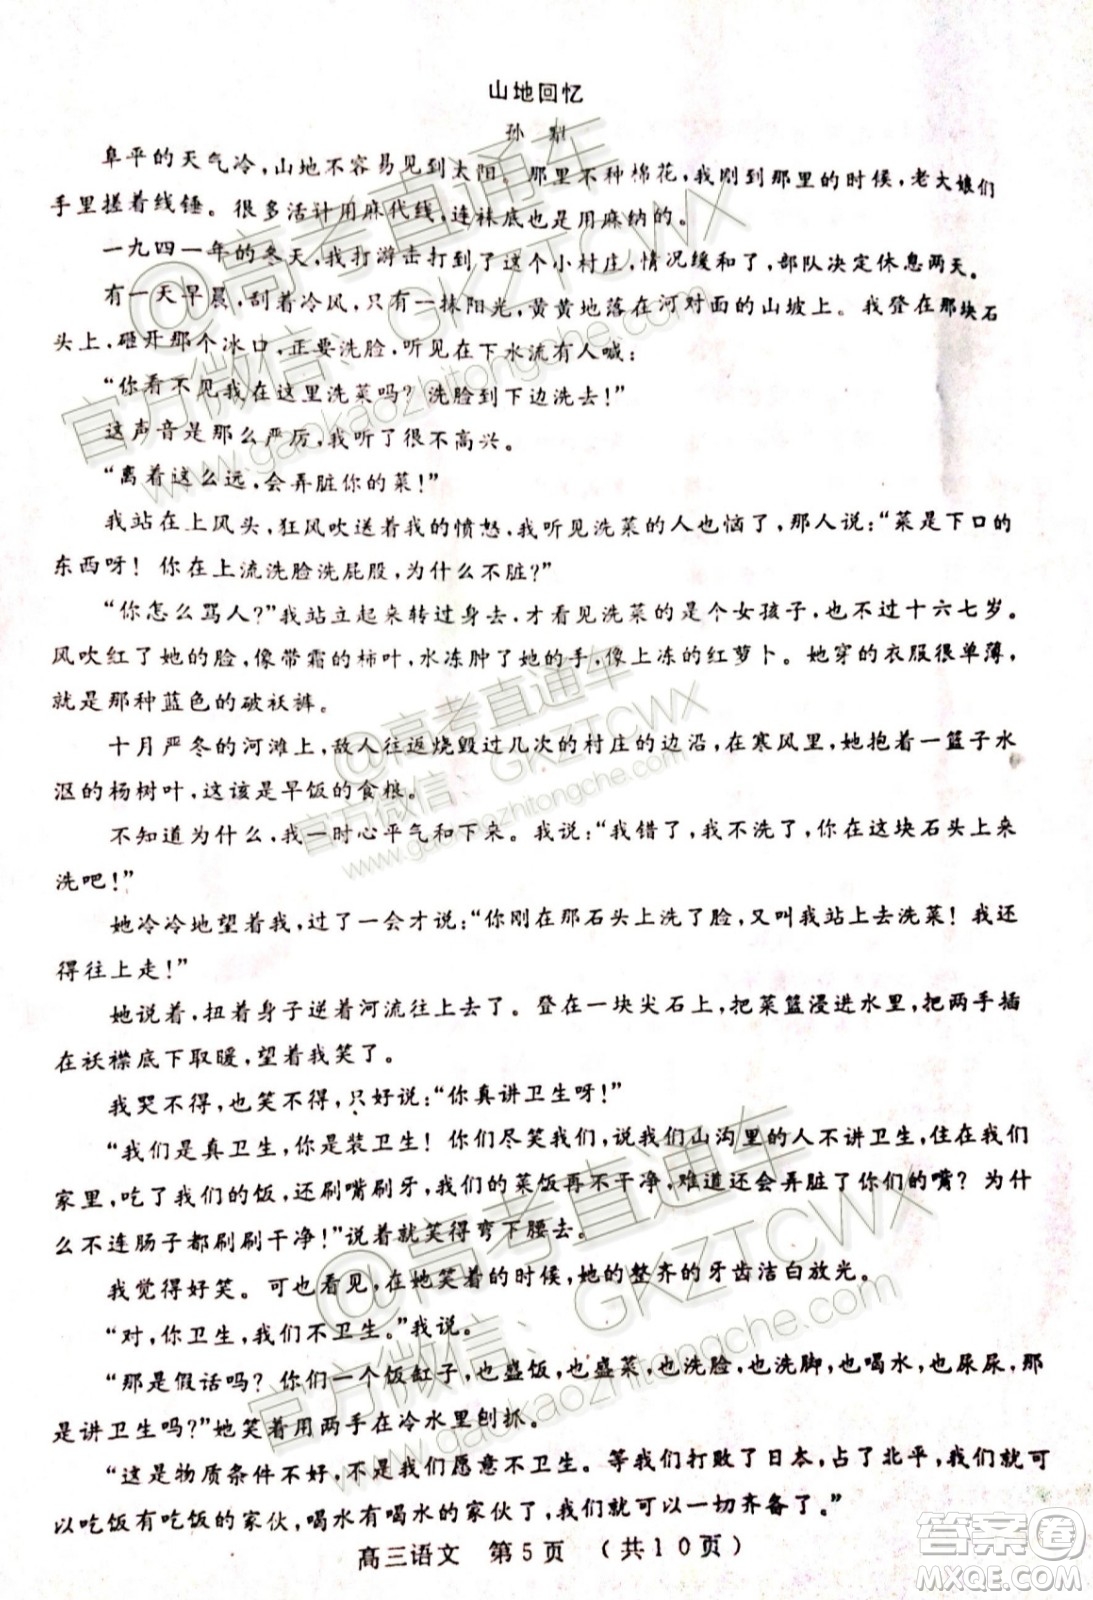 山地回忆
孙 犁
阜平的天气冷，山地不容易见到太阳。那里不种棉花，我刚到那里的时候，老大娘们
手里搓着线锤。很多活计用麻代线，连袜底也是用麻纳的。
一九四一年的冬天，我打游击打到了这个小村庄，情况缓和了，部队决定休息两天。
有一天早晨，刮着冷风，只有一抹阳光，黄黄地落在河对面的山坡上。我登在那块石
头上，砸开那个冰口，正要洗脸，听见在下水流有人喊：
“你看不见我在这里洗菜吗？洗脸到下边洗去！”
这声音是那么严厉，我听了很不高兴。
“离着这么远，会弄脏你的菜！”
我站在上风头，狂风吹送着我的愤怒，我听见洗菜的人也恼了，那人说：“菜是下口的
东西呀！你在上流洗脸洗屁股，为什么不脏？”
“你怎么骂人？”我站立起来转过身去，才看见洗菜的是个女孩子，也不过十六七岁。
风吹红了她的脸，像带霜的柿叶，水冻肿了她的手，像上冻的红萝卜。她穿的衣服很单薄，
就是那种蓝色的破袄裤。
十月严冬的河滩上，敌人往返烧毁过几次的村庄的边沿，在寒风里，她抱着一篮子水
沤的杨树叶，这该是早饭的食粮。
不知道为什么，我一时心平气和下来。我说：“我错了，我不洗了，你在这块石头上来
洗吧！”
她冷冷地望着我，过了一会才说：“你刚在那石头上洗了脸，又叫我站上去洗菜！我还
得往上走！”
她说着，扭着身子逆着河流往上去了。登在一块尖石上，把菜篮浸进水里，把两手插
在袄襟底下取暖，望着我笑了。
我哭不得，也笑不得，只好说：“你真讲卫生呀！”
“我们是真卫生，你是装卫生！你们尽笑我们，说我们山沟里的人不讲卫生，住在我们
家里，吃了我们的饭，还刷嘴刷牙，我们的菜饭再不干净，难道还会弄脏了你们的嘴？为什
么不连肠子都刷刷干净！”说着就笑得弯下腰去。
我觉得好笑。可也看见，在她笑着的时候，她的整齐的牙齿洁白放光。
“对，你卫生，我们不卫生。”我说。
“那是假话吗？你们一个饭缸子，也盛饭，也盛菜，也洗脸，也洗脚，也喝水，也尿尿，那
是讲卫生吗？”她笑着用两手在冷水里刨抓。
“这是物质条件不好，不是我们愿意不卫生。等我们打败了日本，占了北平，我们就可
以吃饭有吃饭的家伙，喝水有喝水的家伙了，我们就可以一切齐备了。”
高三语文 第5页 （共10页）
@高考直通车
官方微信：GKZTCWX
www.gaokaozhitongche.com
@高考直通车
官方微信：GKZTCWX
www.gaokaozhitongche.com
@高考直通车
官方微信：GKZTCWX
www.gaokaozhitongche.com
答案卷
MXQE.COM